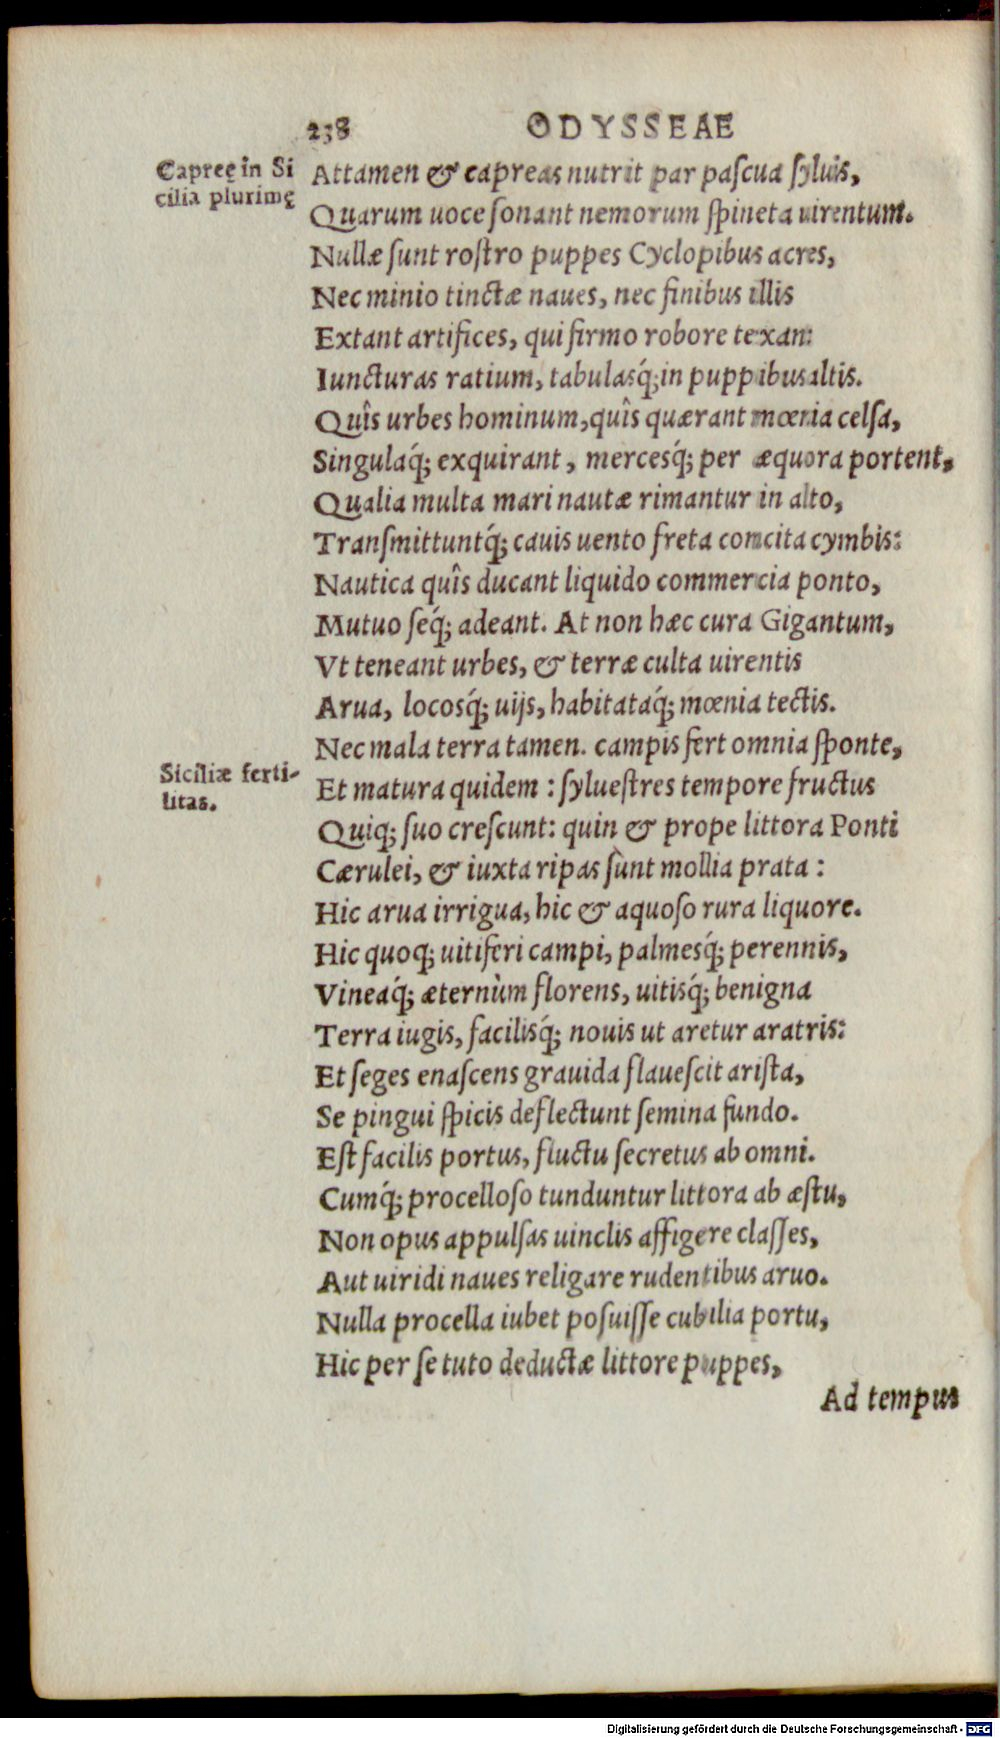 238 ODYSSEAE
Capreę in Si
cilia plurimę
Attamen & capreas nutrit par paſcua ſyluis,
Quarum uoce ſonant nemorum ſpineta uirentum.
Nullæ ſunt roſtro puppes Cyclopibus acres,
Nec minio tinctæ naues, nec finibus illis
Extant artifices, qui firmo robore texant
Iuncturas ratium, tabulasq́; in puppibus altis.
Quîs urbes hominum, quîs quærant mœnia celſa,
Singulaq́; exquirant, mercesq́; per æquora portent,
Qualia multa mari nautæ rimantur in alto,
Tranſmittuntq́; cauis uento freta concita cymbis:
Nautica quîs ducant liquido commercia ponto,
Mutuo ſeq́; adeant. At non hæc cura Gigantum,
Vt teneant urbes, & terræ culta uirentis
Arua, locosq́; uijs, habitataq́; mœnia tectis.
Nec mala terra tamen. campis fert omnia ſponte,
Siciliæ ferti-
litas.
Et matura quidem : ſylueſtres tempore fructus
Quiq; ſuo creſcunt: quin & prope littora Ponti
Cærulei, & iuxta ripas ſunt mollia prata :
Hic arua irrigua, hic & aquoſo rura liquore.
Hic quoq; uitiferi campi, palmesq́; perennis,
Vineaq́; æternùm florens, uitisq́; benigna
Terra iugis, facilisq́; nouis ut aretur aratris:
Et ſeges enaſcens grauida flaueſcit ariſta,
Se pingui ſpicis deflectunt ſemina fundo.
Eſt facilis portus, fluctu ſecretus ab omni.
Cumq́; procelloſo tunduntur littora ab æſtu,
Non opus appulſas uinclis affigere claſſes,
Aut uiridi naues religare rudentibus aruo.
Nulla procella iubet poſuiſſe cubilia portu,
Hic per ſe tuto deductæ littore puppes,
Ad tempus
Digitalisierung gefördert durch die Deutsche Forschungsgemeinschaft - DFG